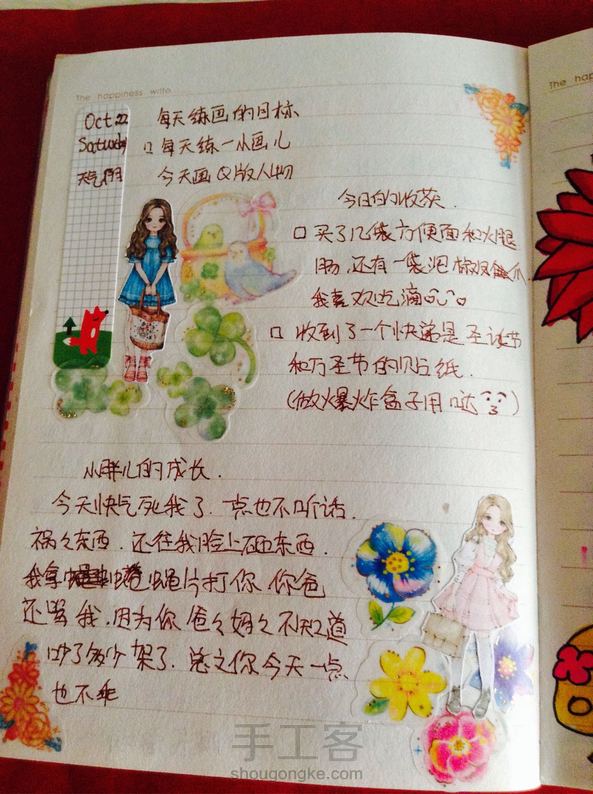 The happiness write
Oct 22
Saturday
天气阴
每天练画的目标
□ 每天练一小画儿
今天画Q版人物
今日的收获.
□ 买了几袋方便面和火腿
肠,还有一袋泡椒凤爪
我喜欢吃滴
□ 收到了一个快递是圣诞节
和万圣节的贴纸.
(做爆炸盒子用哒 3)
小胖儿的成长.
今天快气死我了.一点也不听话.
祸々东西.还往我脸上砸东西.
我拿 蝇片打你 你爸
还骂我.因为你爸々妈々不知道
吵了多少架了.总之你今天一点
也不乖
The hap
手工客
shougongke.com